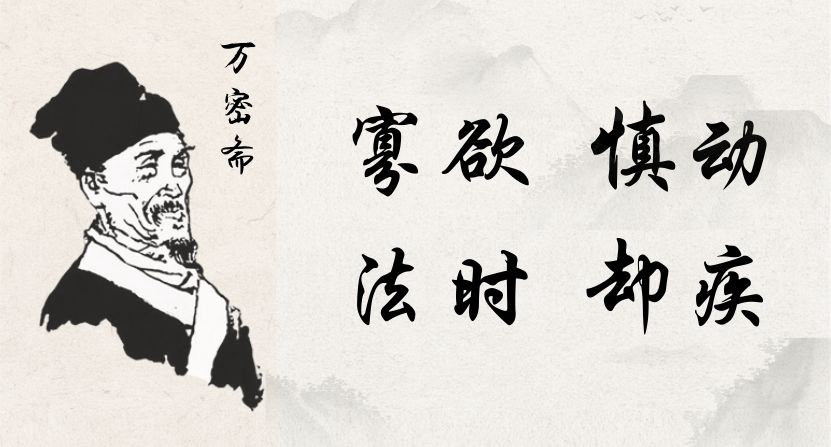 万密斋
寡欲 慎动
法时 却疾